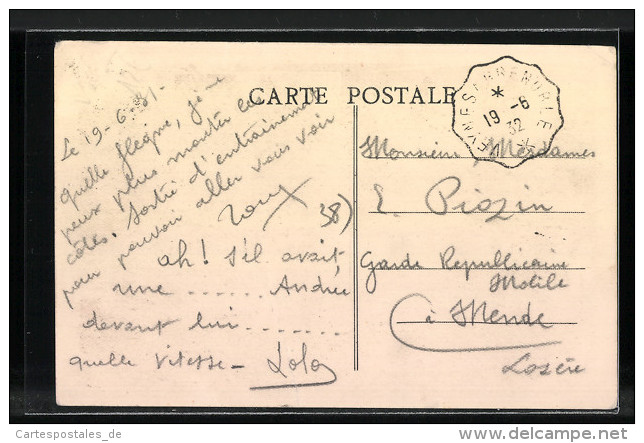 CARTE POSTALE
19 -6
32
Le 19-6-31-
quelle flegne, je
peux plus monter la
côtes. Sortie d'entraînement
pour pouvoir aller vous voir
38)
ah! S'il avait
une ....... Andrée
devant lui ........
quelle vitesse - Lolo
Monsieur Mesdames
E. Piozin
Garde Republicaine
Mobile
à Mende
Lozère
Cartespostales_de
www.cartespostales.eu